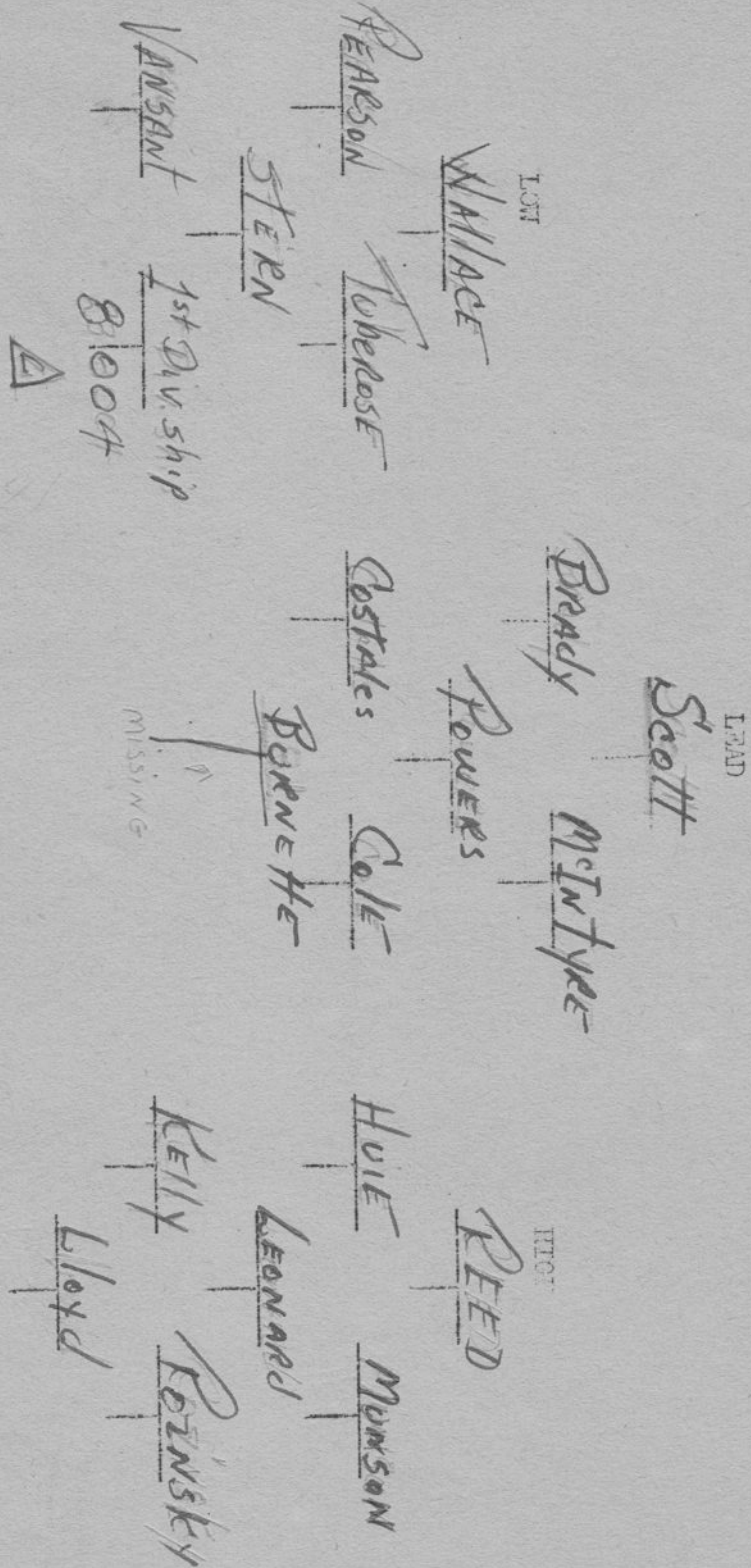 LEAD
Scott
Brady
McIntyre
Powers
Costales
Cole
Burnette
MISSING
LOW
Wallace
Pearson
Tuberose
Stern
Vansant
1st Div. Ship
8 004
L
HIGH
Reed
Huie
Munson
Leonard
Kelly
Lloyd